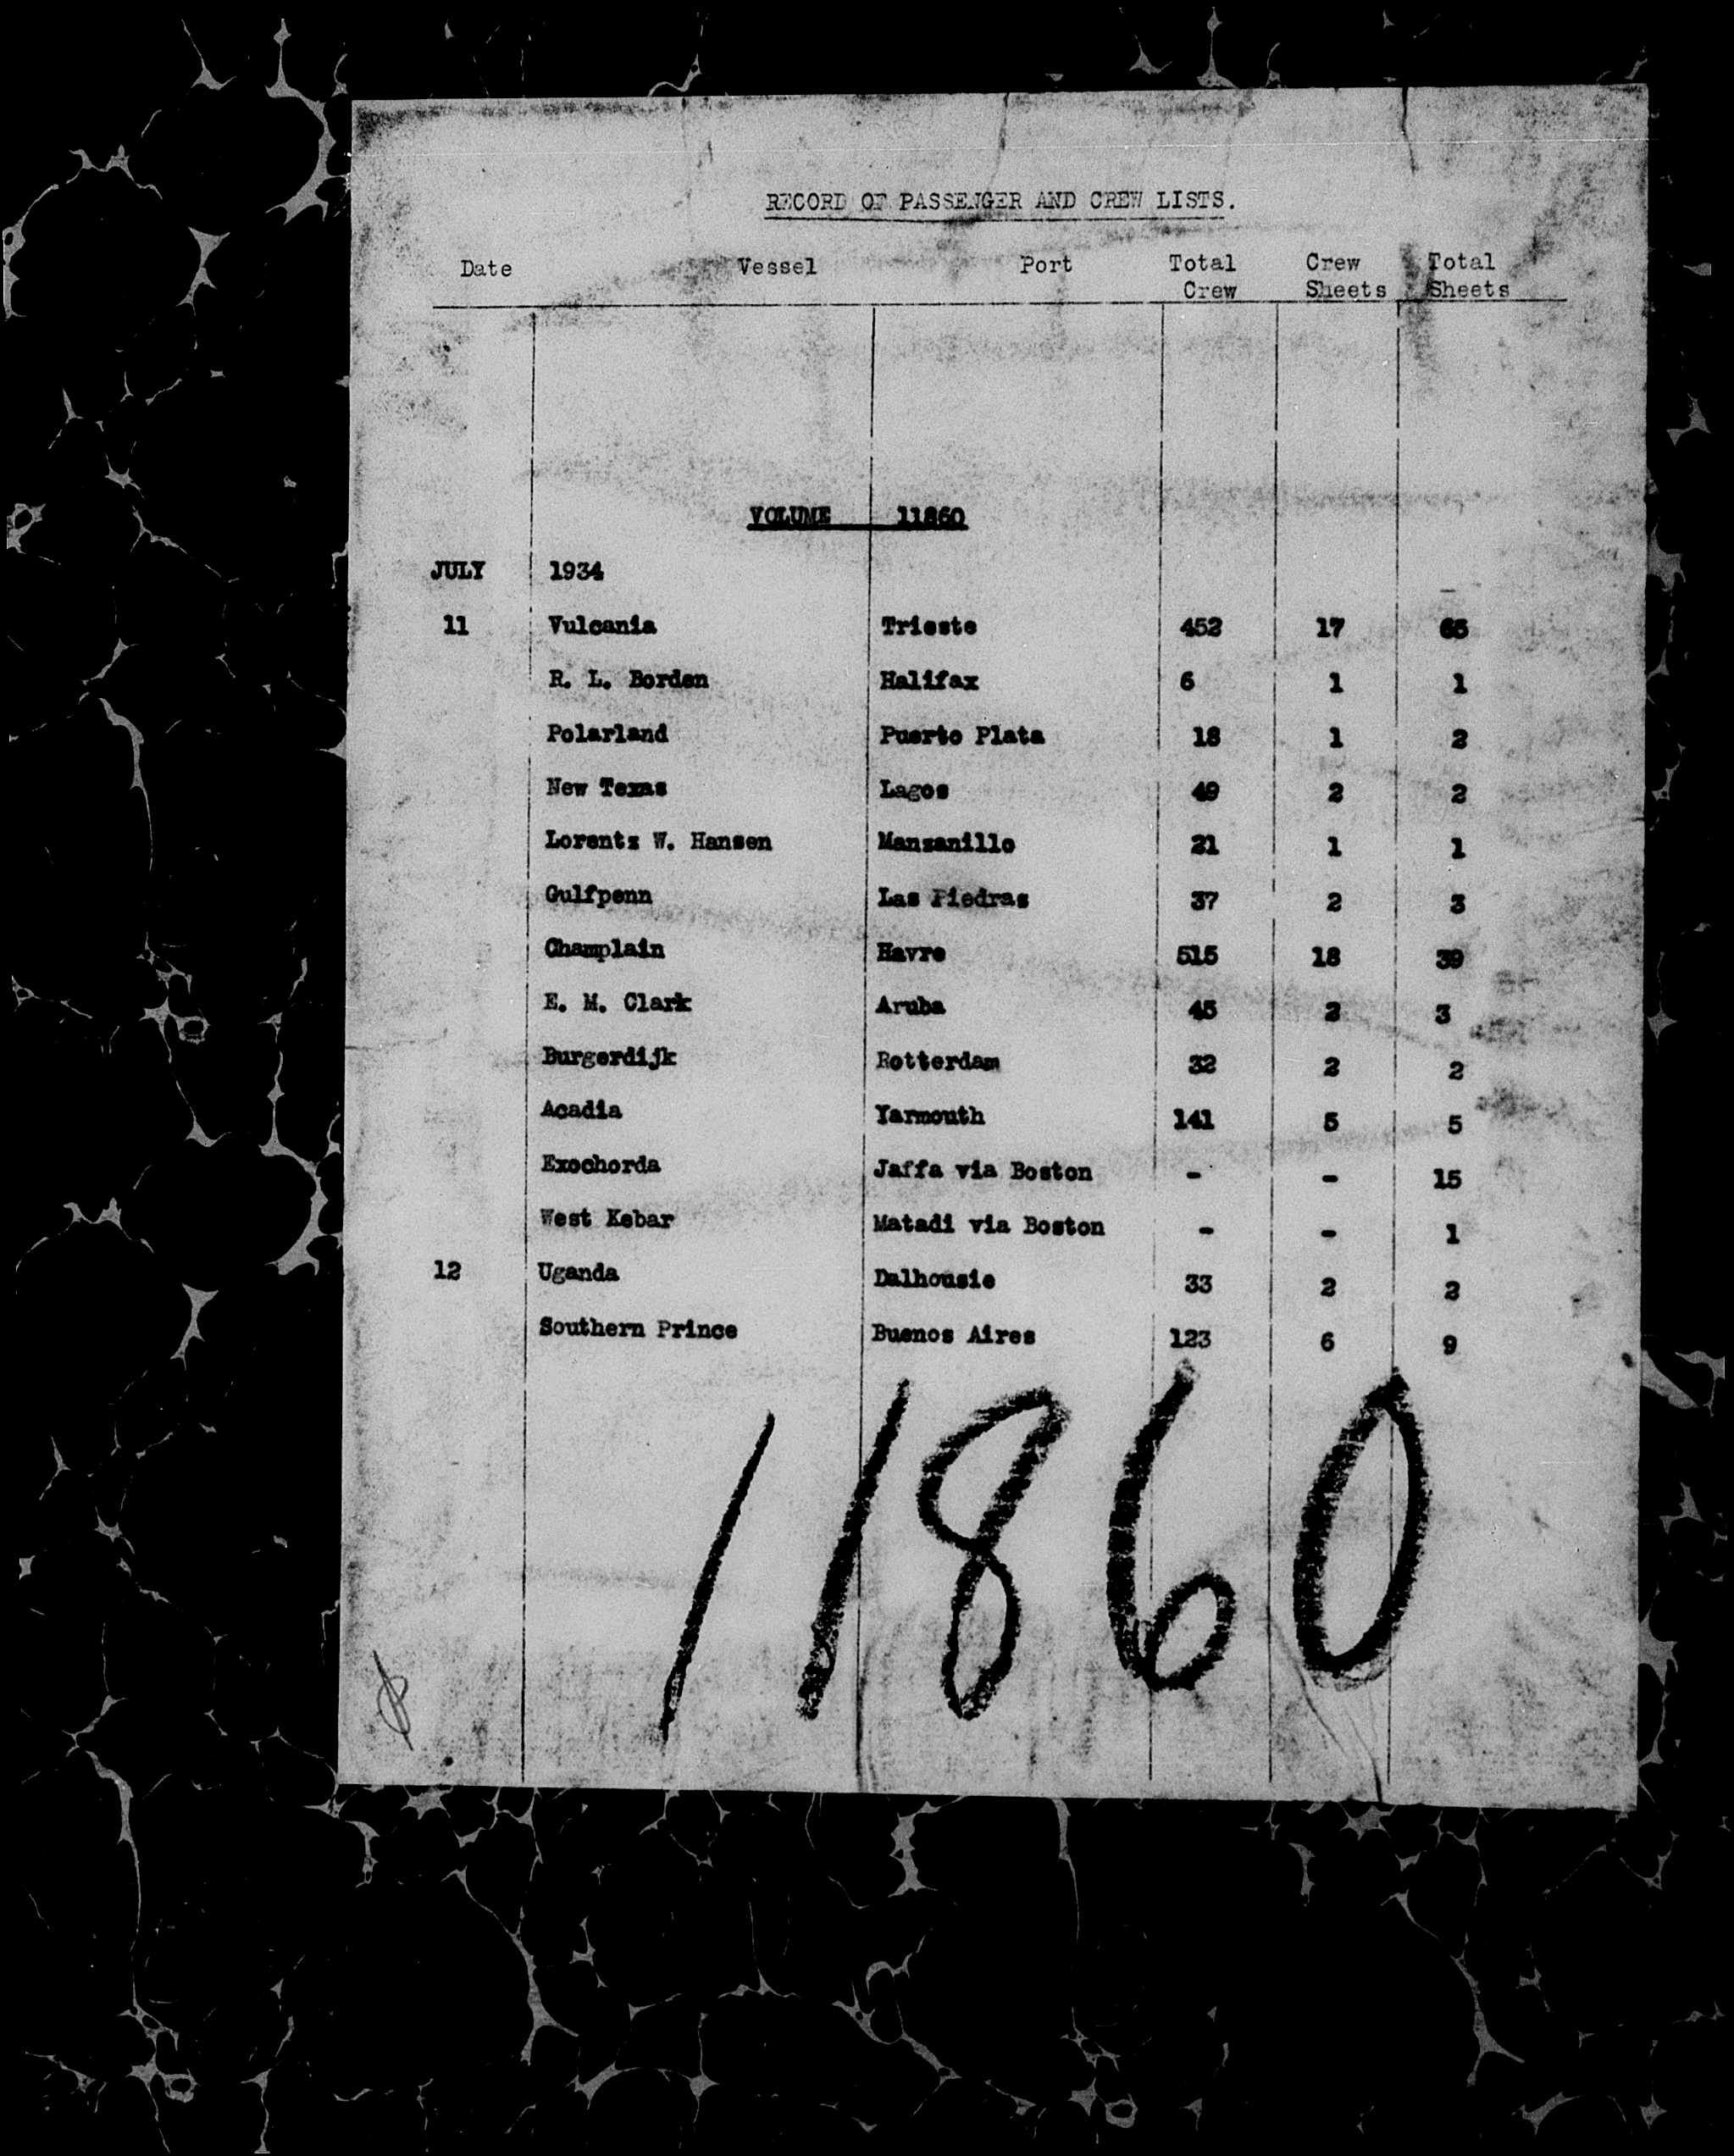 RECORD OF PASSENGER AND CREW LISTS.
Date Vessel Port Total Crew Crew Sheets Total Sheets
VOLUME 11860
JULY 1934
11 Vulcania Trieste 452 17
R. L. Borden Halifax 6 1 1
Polarland Puerto Plata 18 1 2
New Texas Lagos 49 2 2
Lorentz W. Hansen Manzanillo 21 1 1
Gulfpenn Las Piedras 37 2 3
Champlain Havre 515 18 39
E. M. Clark Aruba 45 2 3
Burgerdijk Rotterdam 32 2 2
Acadia Yarmouth 141 5 5
Exochorda Jaffa via Boston - - 15
West Kebar Matadi via Boston - - 1
12 Uganda Dalhousie 33 2 2
Southern Prince Buenos Aires 123 6 9
11860